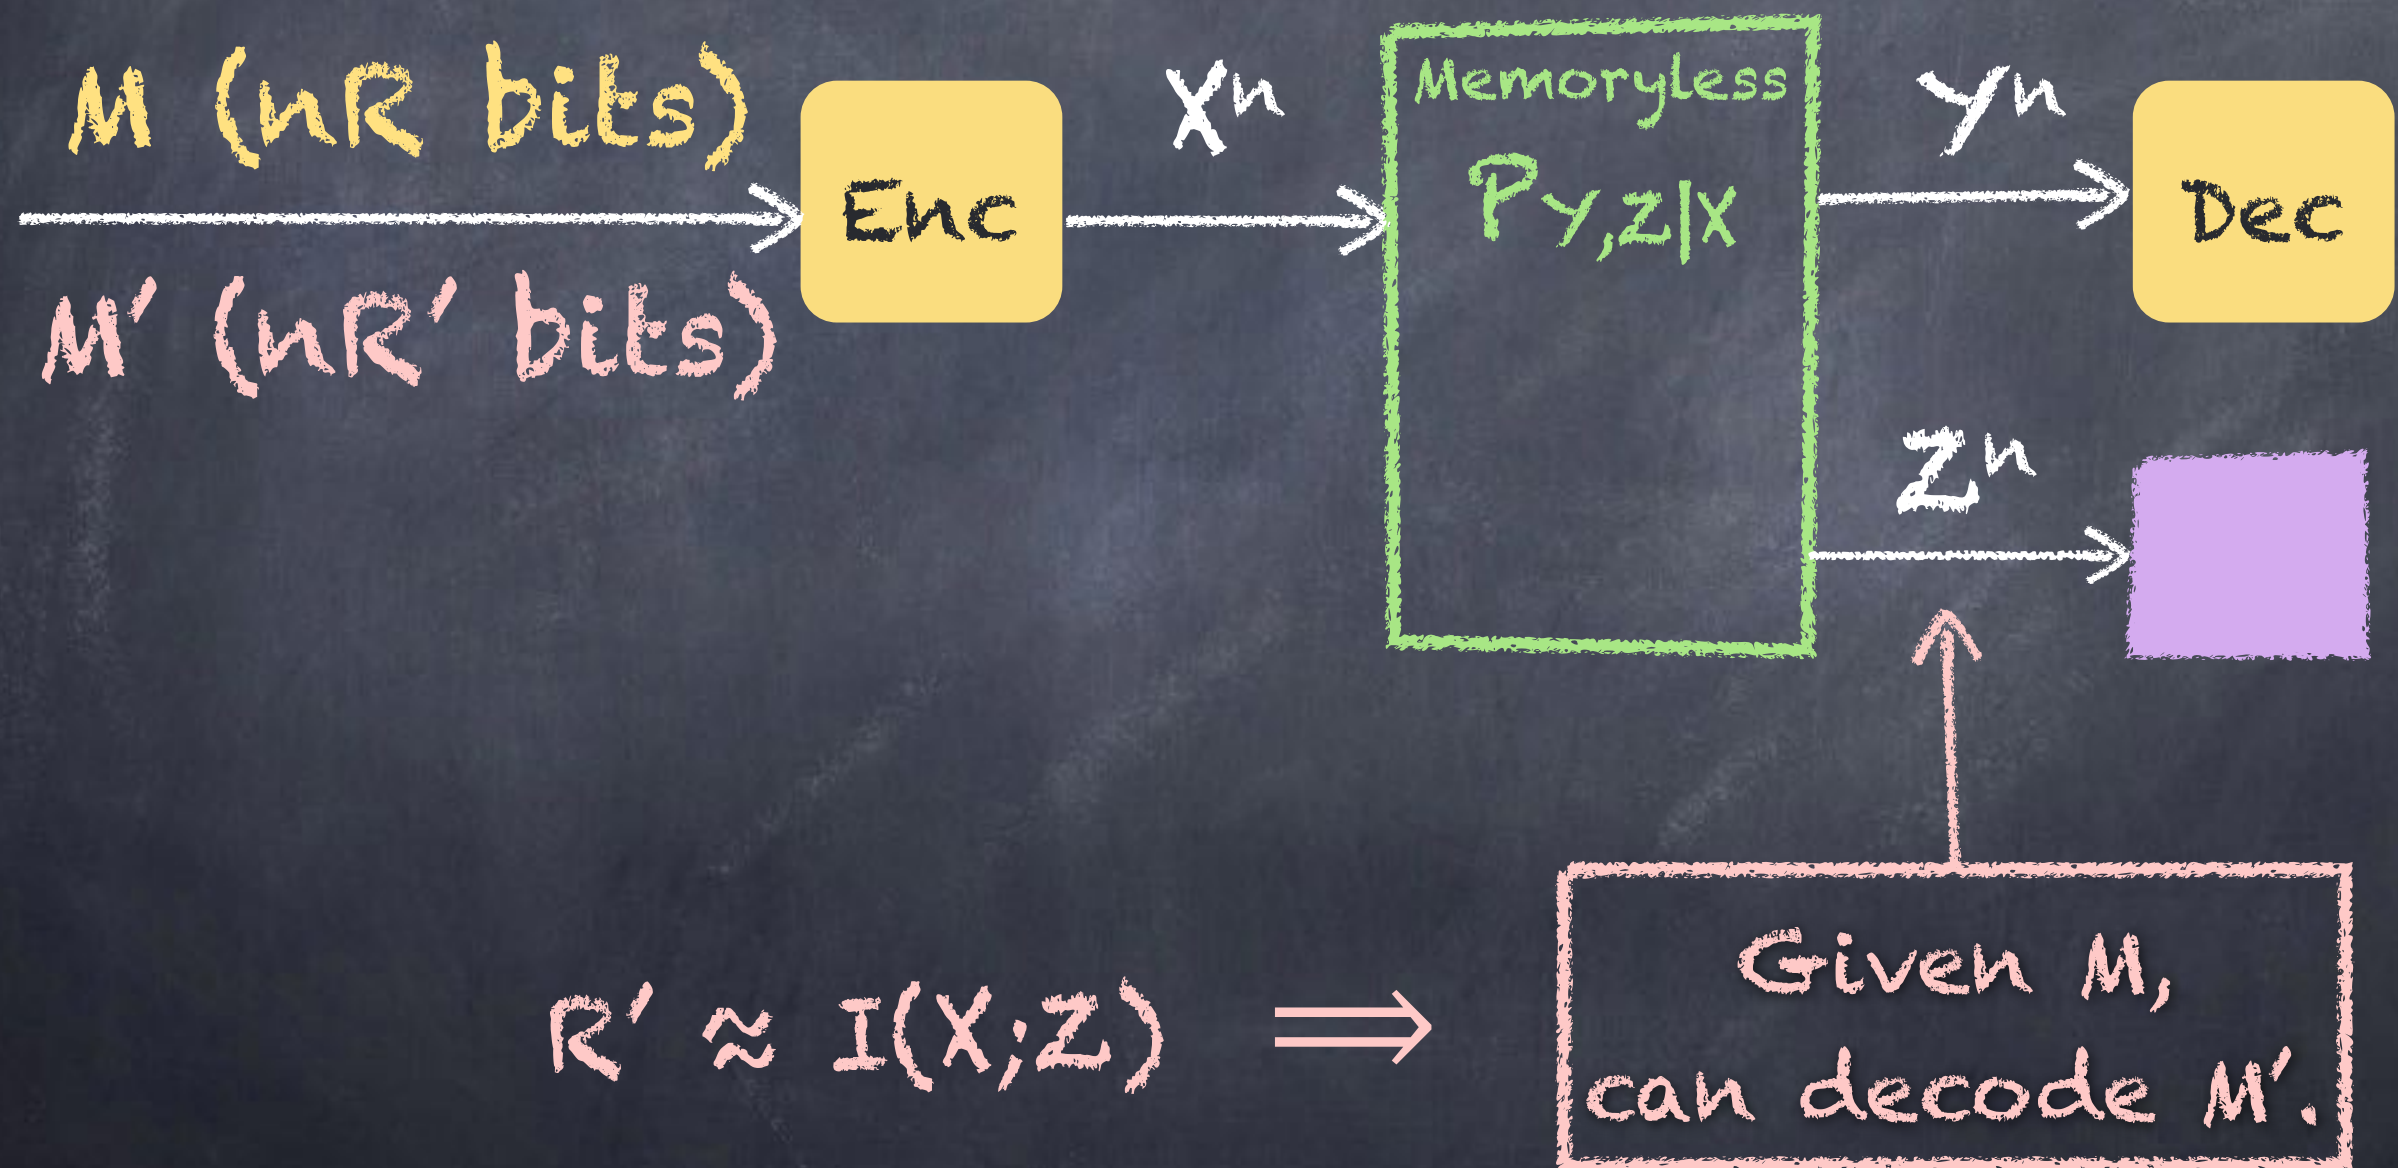 M (nR bits)
M′ (nR′ bits)
Enc
Xⁿ
Memoryless
P_{Y,Z|X}
Yⁿ
Dec
Zⁿ
R′ ≈ I(X;Z) ⟹
Given M,
can decode M′.